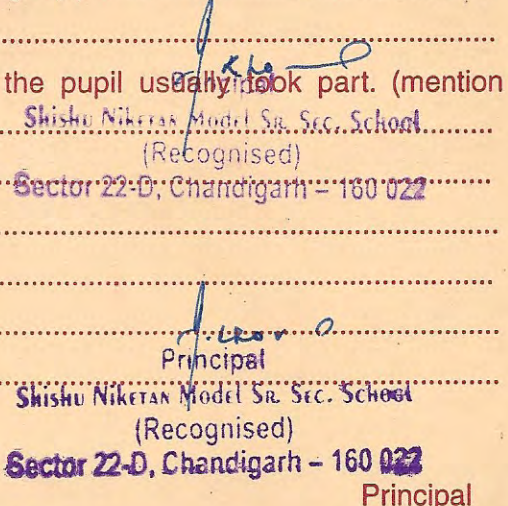 the pupil usually took part. (mention
Principal
Shishu Niketan Model Sr. Sec. School
(Recognised)
Sector 22-D, Chandigarh – 160 022
Principal
Shishu Niketan Model Sr. Sec. School
(Recognised)
Sector 22-D, Chandigarh – 160 022
Principal